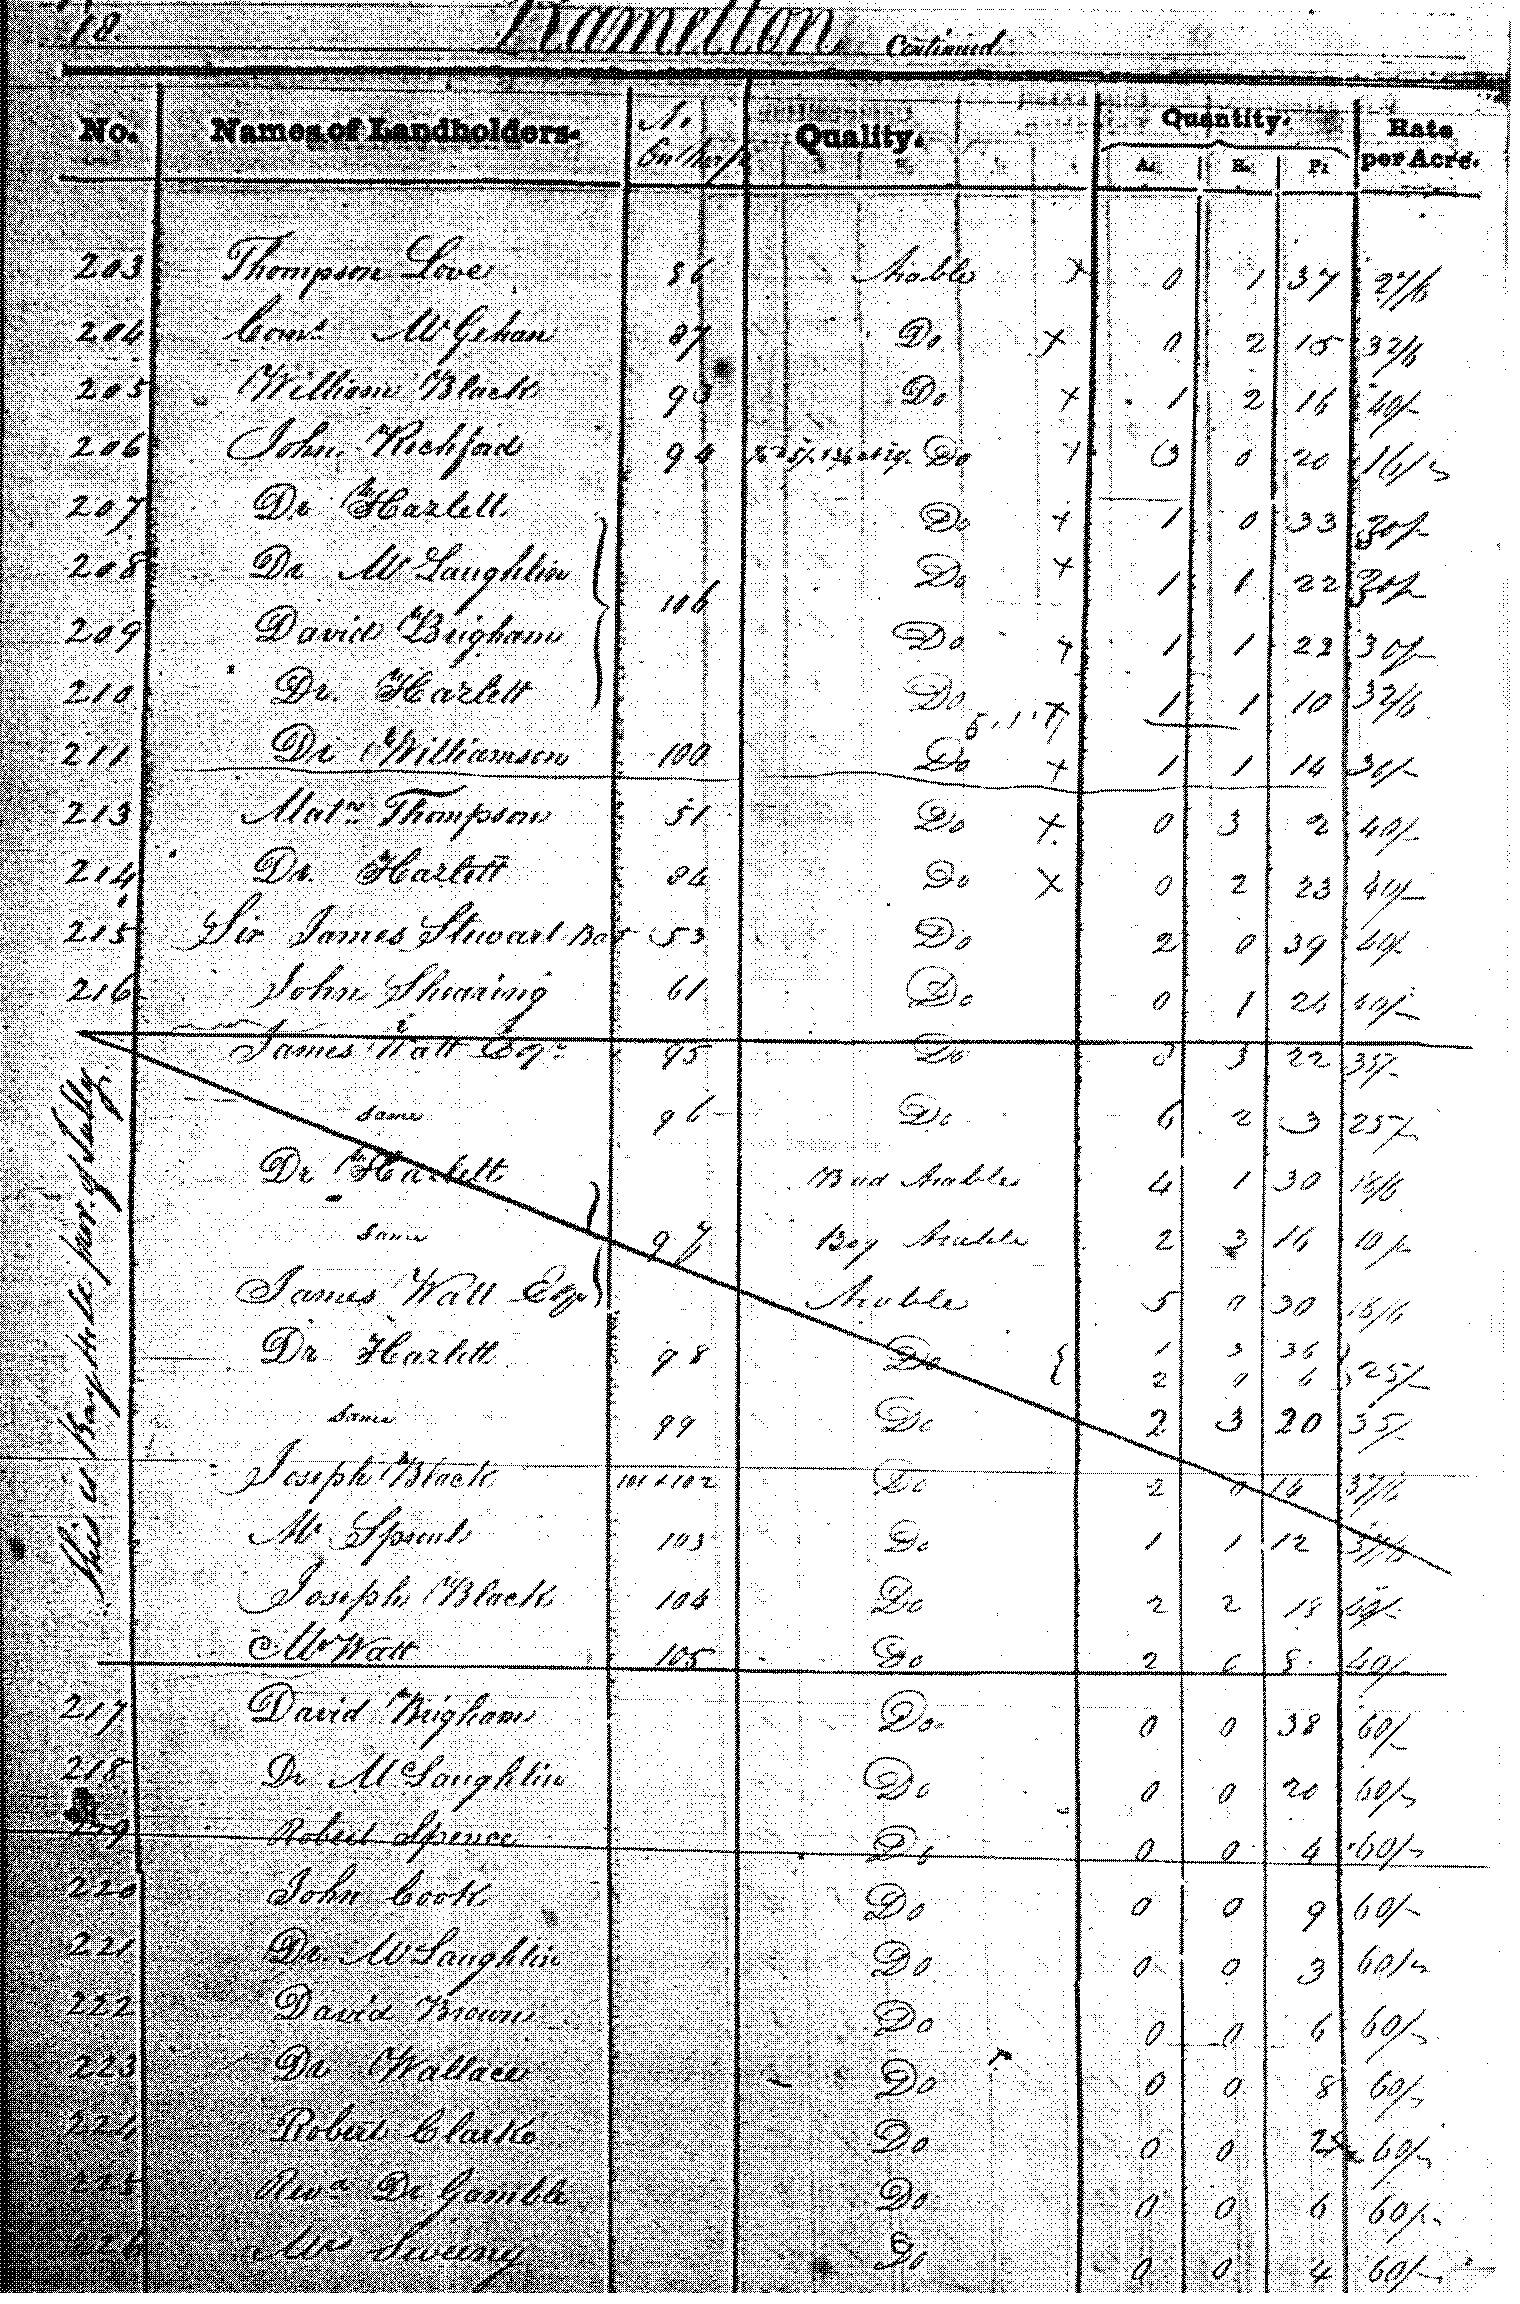 18. Ramelton Continued
No. Names of Landholders. N. Quality. Quantity. Rate per Acre.
A. R. P.
203 Thompson Love 86 Arable x 0 1 37 27/6
204 Coms. McGehan 87 Do x 0 2 15 32/6
205 William Black 93 Do x 1 2 16 40/-
206 John Richford 94 Do x 3 0 20 16/-
207 Dr Hazlett Do x 1 0 33 30/-
208 Dr McLaughlin 106 Do x 1 1 22 30/-
209 David Brigham Do x 1 1 22 30/-
210 Dr. Hazlett Do x 1 1 10 32/6
5.1.17
211 Dr Williamson 100 Do x 1 1 14 30/-
213 Matw Thompson 51 Do x 0 3 2 40/-
214 Dr. Hazlett 84 Do x 0 2 23 40/-
215 Sir James Stewart Bart 53 Do 2 0 39 40/-
216 John Shearing 61 Do 0 1 26 40/-
James Watt Esqr 95 Do 0 3 22 35/-
same 96 Do 6 2 3 25/-
Dr Hazlett Bad Arable 4 1 30 18/6
same 97 Bog Arable 2 3 16 10/-
James Watt Esqr Arable 5 0 30 18/6
Dr Hazlett 98 Do 1 3 36
2 0 6 25/-
same 99 Do 2 3 20 35/-
Joseph Black 101+102 Do 2 0 14 37/6
Mr Sproul 103 Do 1 1 12 37/6
Joseph Black 104 Do 2 2 18 40/-
Mr Watt 105 Do 2 0 8 40/-
This is Bayhole part of Tully
217 David Brigham Do 0 0 38 60/-
218 Dr McLaughlin Do 0 0 20 60/-
219 Robert Spence Do 0 0 4 60/-
220 John Cook Do 0 0 9 60/-
221 Dr. McLaughlin Do 0 0 3 60/-
222 David Brown Do 0 0 6 60/-
223 Dr Wallace Do 0 0 8 60/-
224 Robert Clarke Do 0 0 60/-
225 Revd Dr Gamble Do 0 0 6 60/-
226 Mrs Sweeny Do 0 0 4 60/-